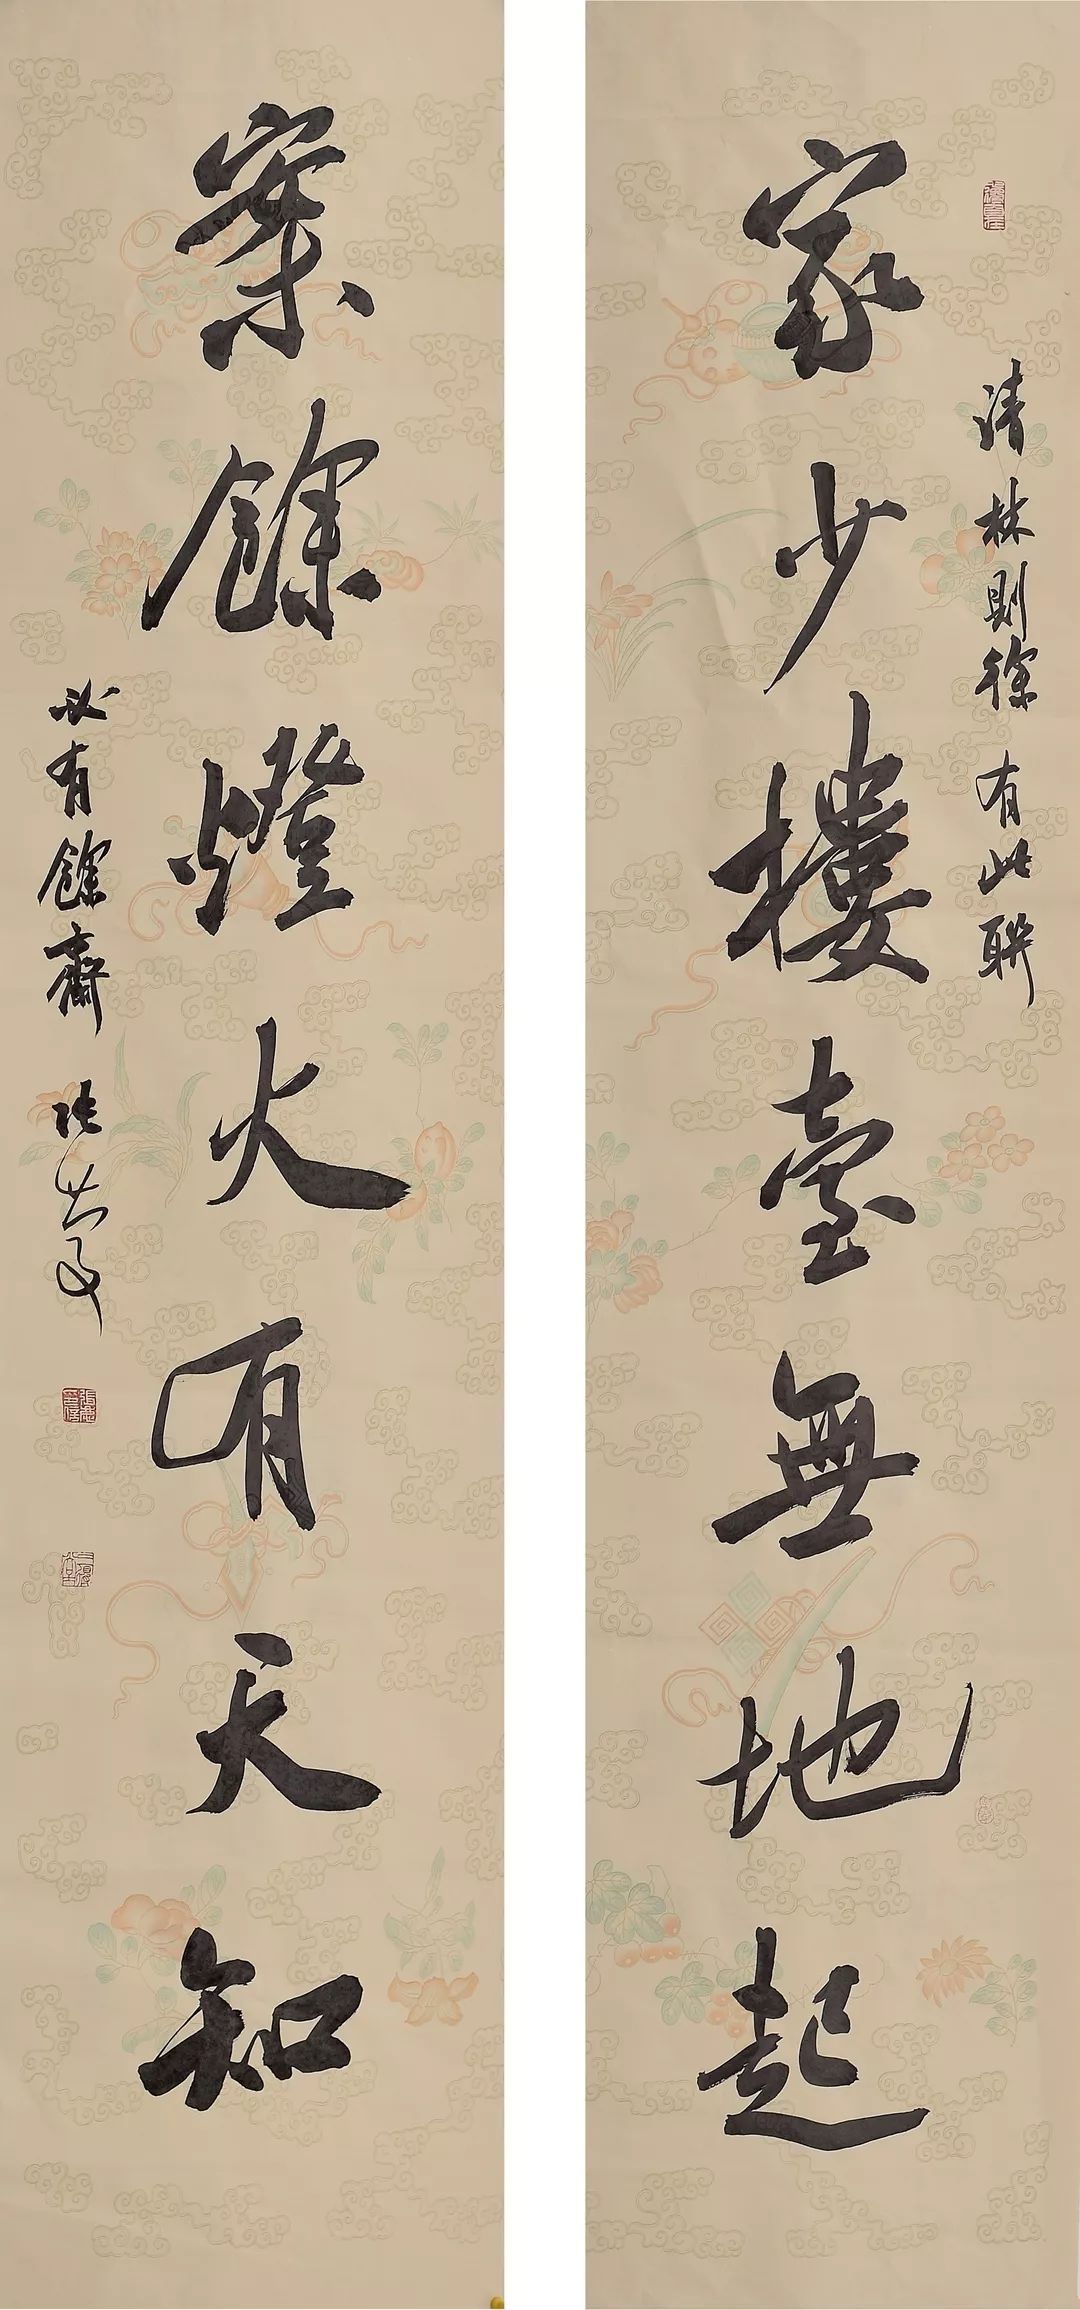 家少樓臺無地起
清林則徐有此聯
案餘燈火有天知
必有餘齋